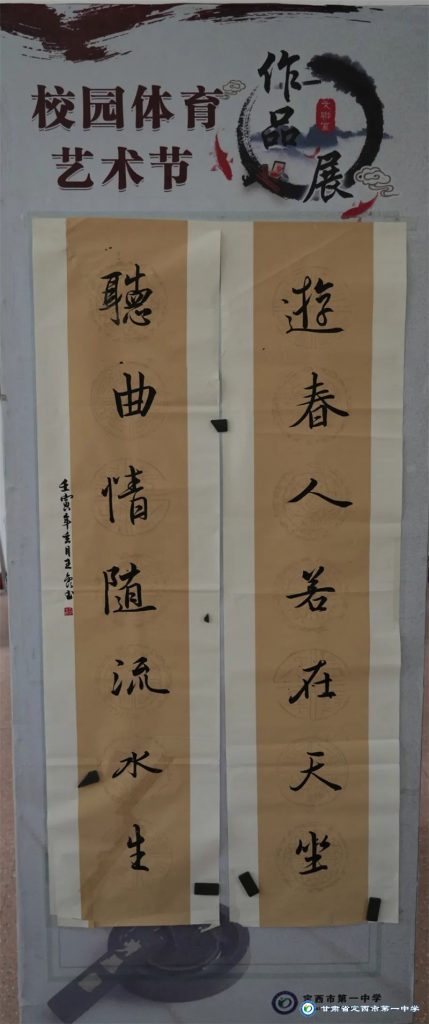 校园体育
艺术节
作品展
遊春人若在天坐
聽曲情随流水生
壬寅年
定西市第一中学
甘肃省定西市第一中学